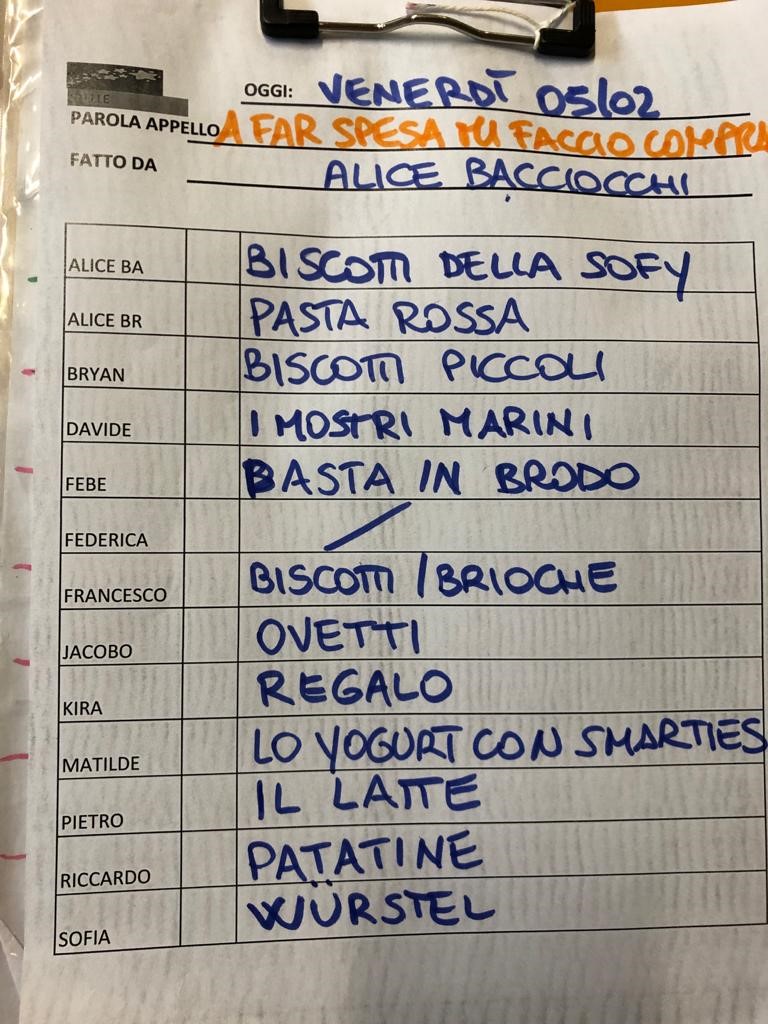 OGGI: VENERDÌ 05/02
PAROLA APPELLO A FAR SPESA MI FACCIO COMPRA
FATTO DA ALICE BACCIOCCHI
ALICE BA BISCOTTI DELLA SOFY
ALICE BR PASTA ROSSA
BRYAN BISCOTTI PICCOLI
DAVIDE I MOSTRI MARINI
FEBE PASTA IN BRODO
FEDERICA /
FRANCESCO BISCOTTI / BRIOCHE
JACOBO OVETTI
KIRA REGALO
MATILDE LO YOGURT CON SMARTIES
PIETRO IL LATTE
RICCARDO PATATINE
SOFIA WÜRSTEL